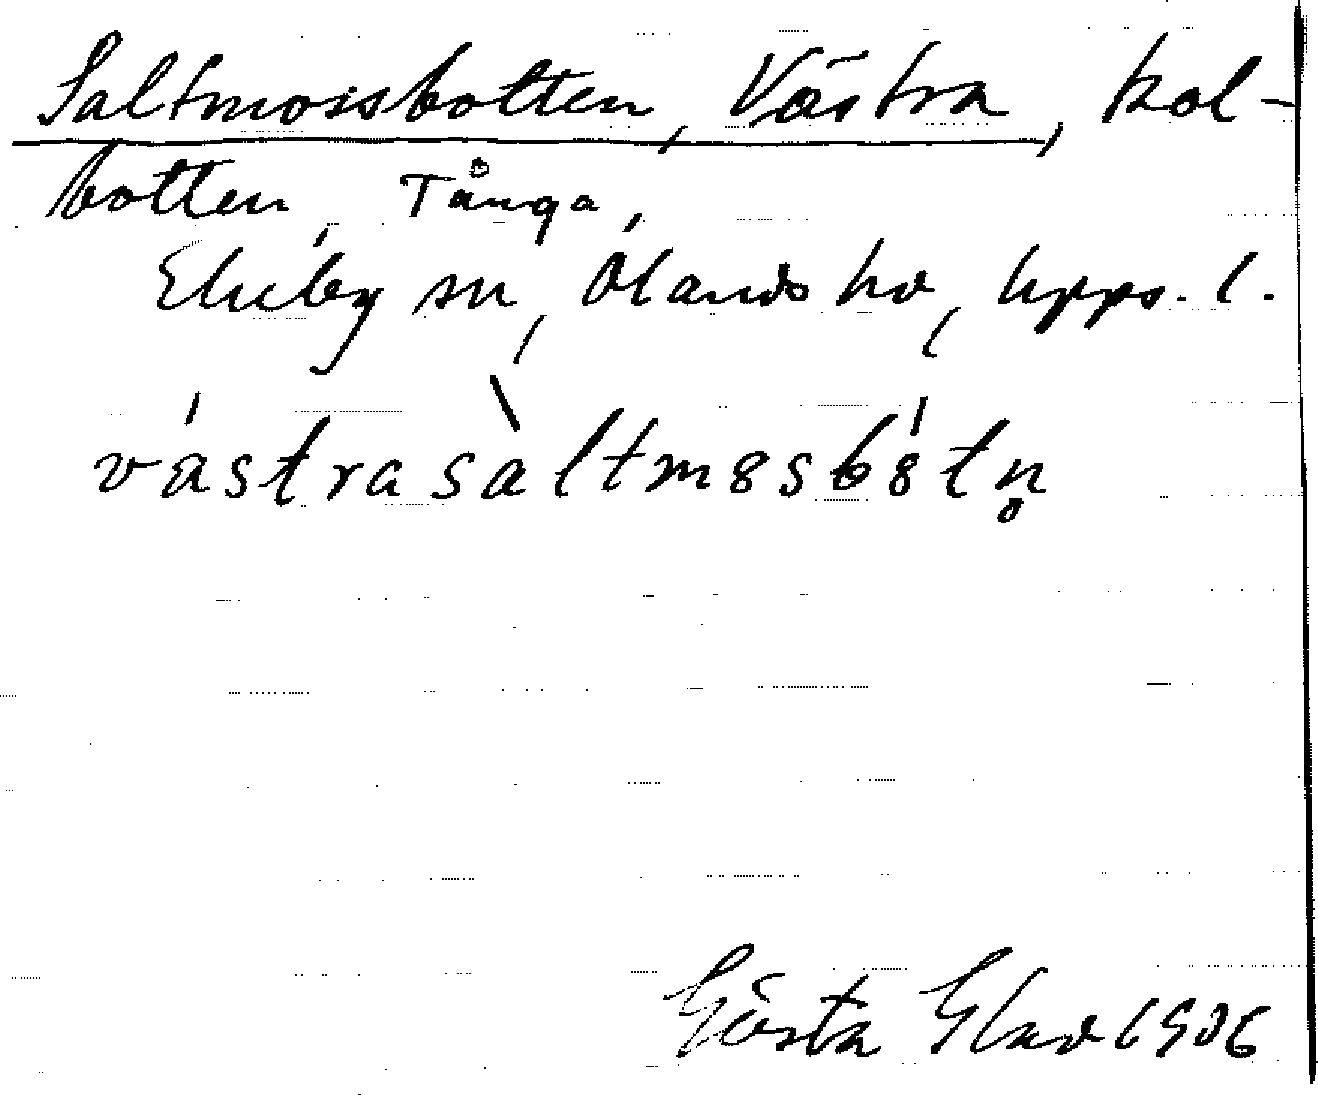 Saltmossbotten, Västra, kol-
botten, Tånga,
Ekeby sn, Olands hd, Upps. l.
västrasàltm8sb8tn̥
Gösta Glad 1936